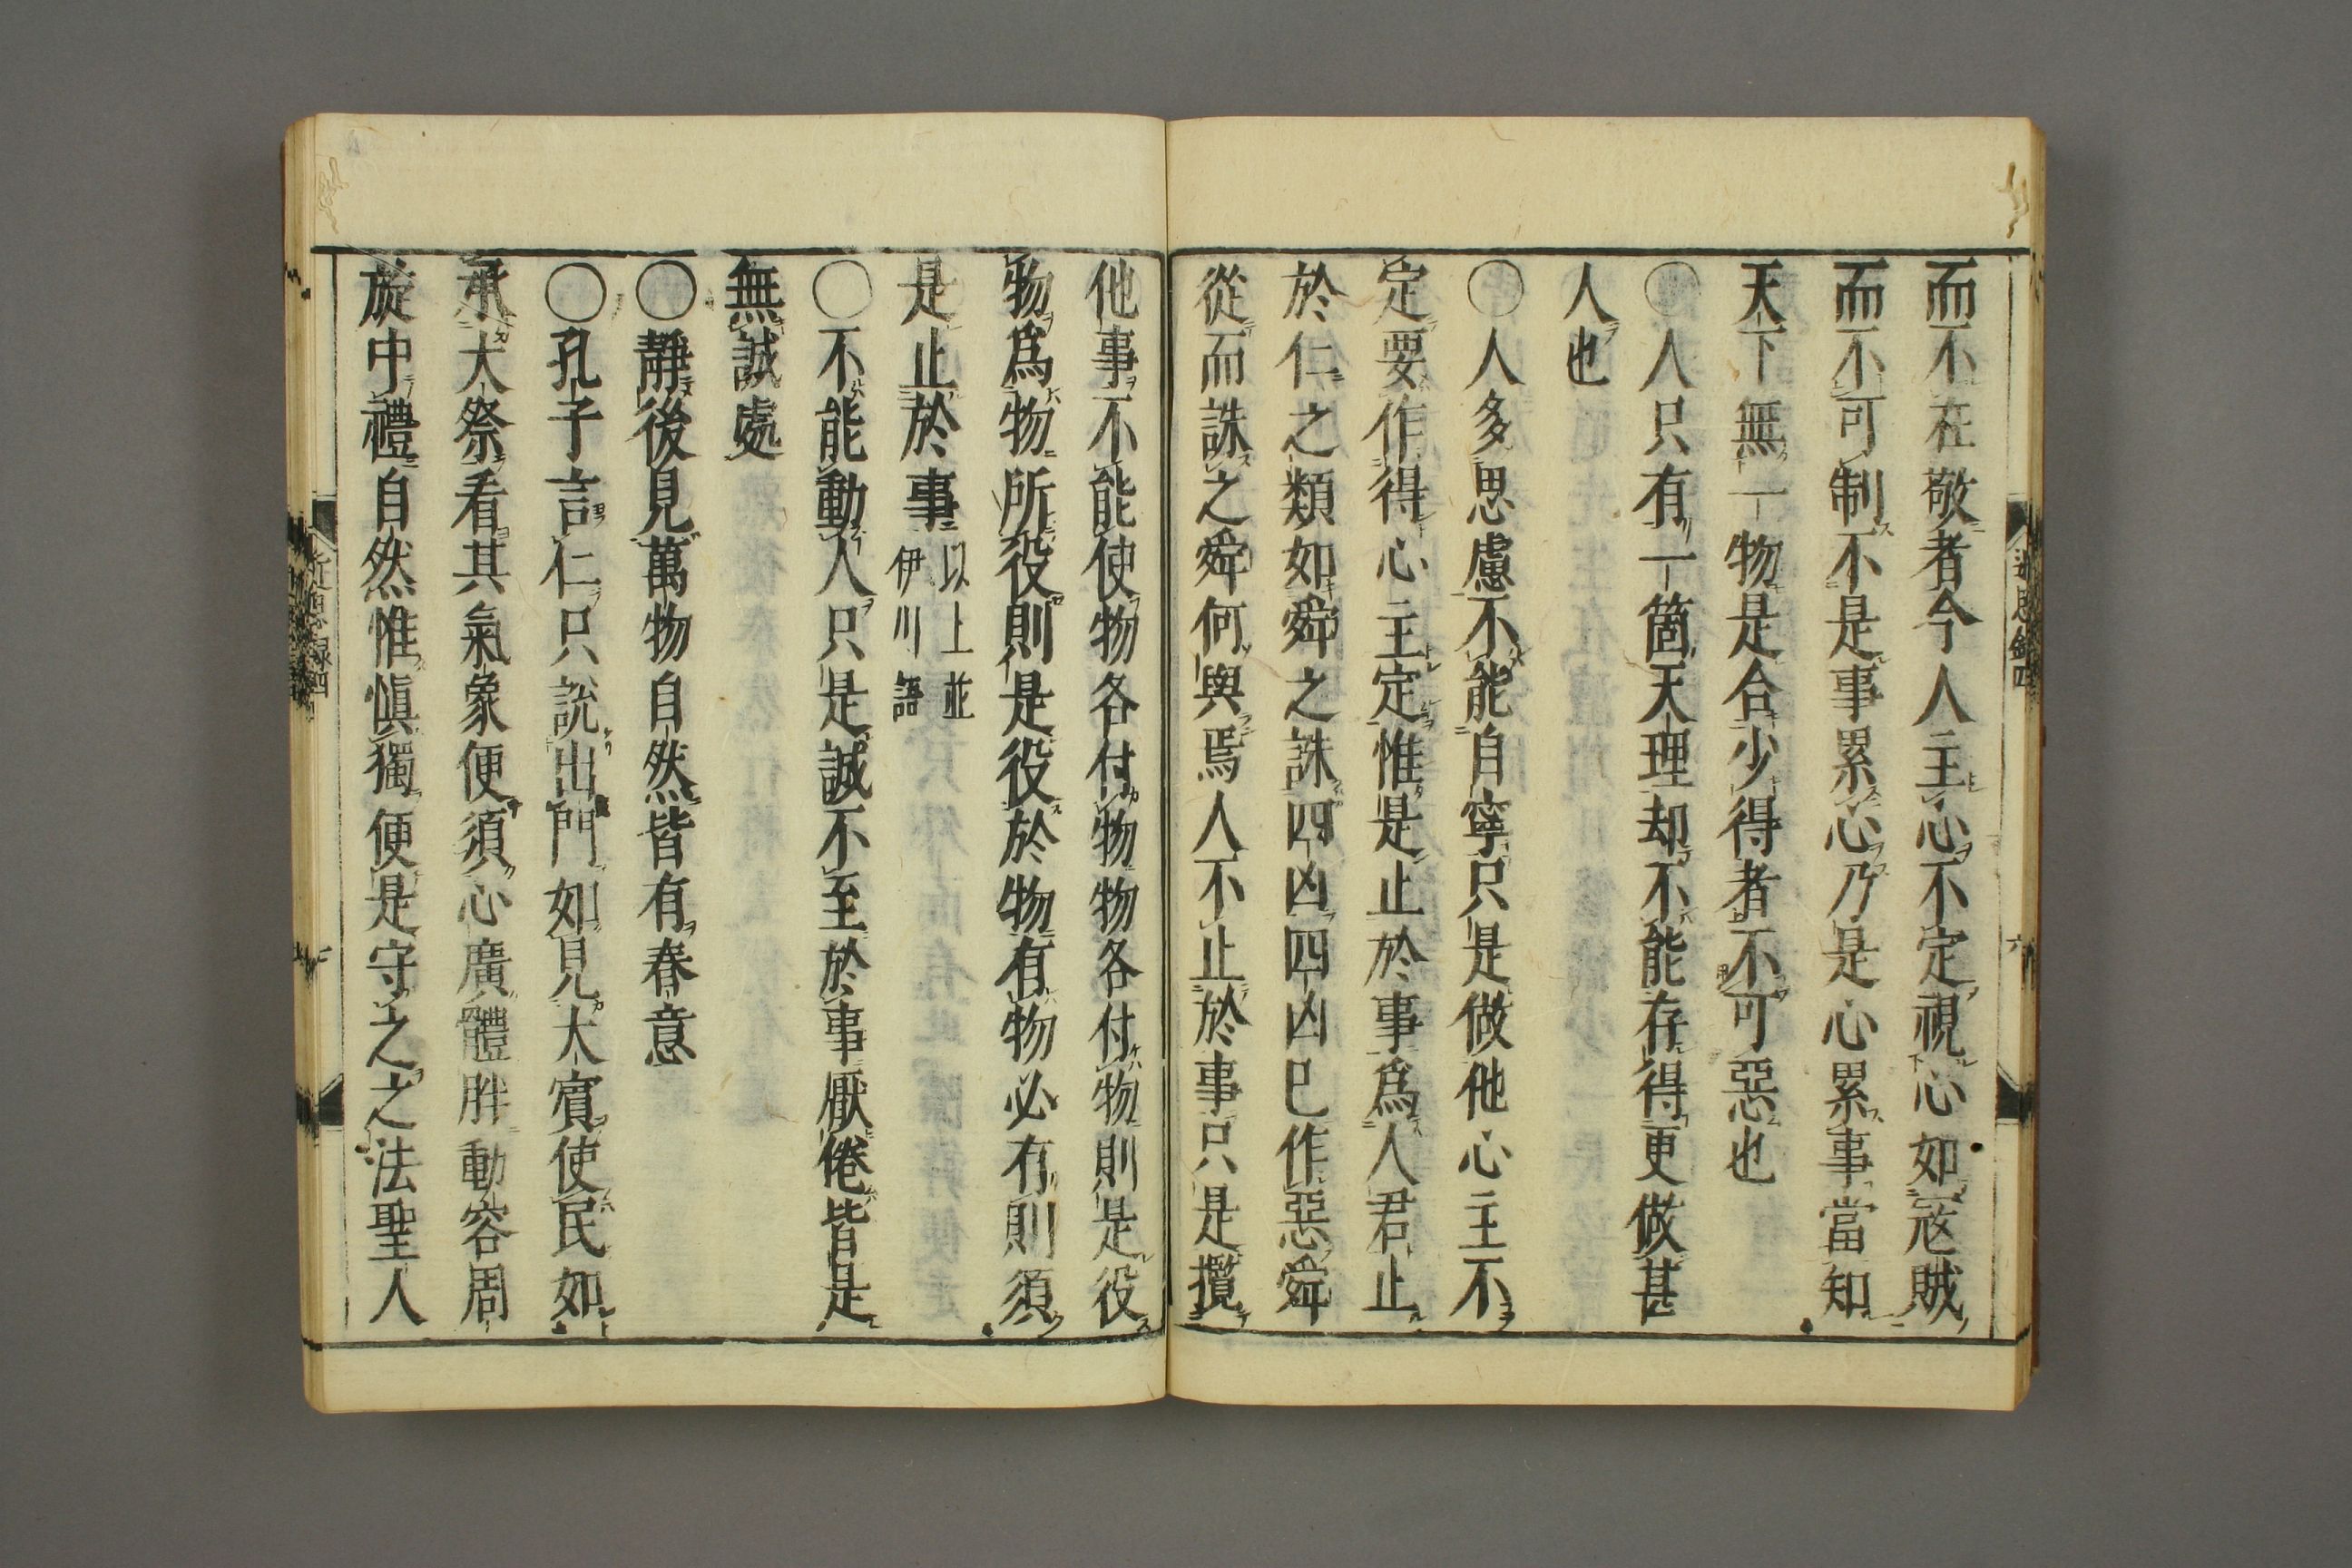 而不在敬者今人主心不定視心如冦賊
而不可制不是事累心乃是心累事當知
天下無一物是合少得者不可惡也
○人只有一箇天理却不能存得更做甚
人也
○人多思慮不能自寧只是做他心主不
定要作得心主定惟是止於事爲人君止
於仁之類如舜之誅四凶四凶已作惡舜
從而誅之舜何與焉人不止於事只是攬
他事不能使物各付物物各付物則是役
物爲物所役則是役於物有物必有則須
是止於事以上並伊川語
○不能動人只是誠不至於事厭倦皆是
無誠處
○靜後見萬物自然皆有春意
○孔子言仁只說出門如見大賓使民如
承大祭看其氣象便須心廣體胖動容周
旋中禮自然惟愼獨便是守之之法聖人
近思錄四
六
近思録四